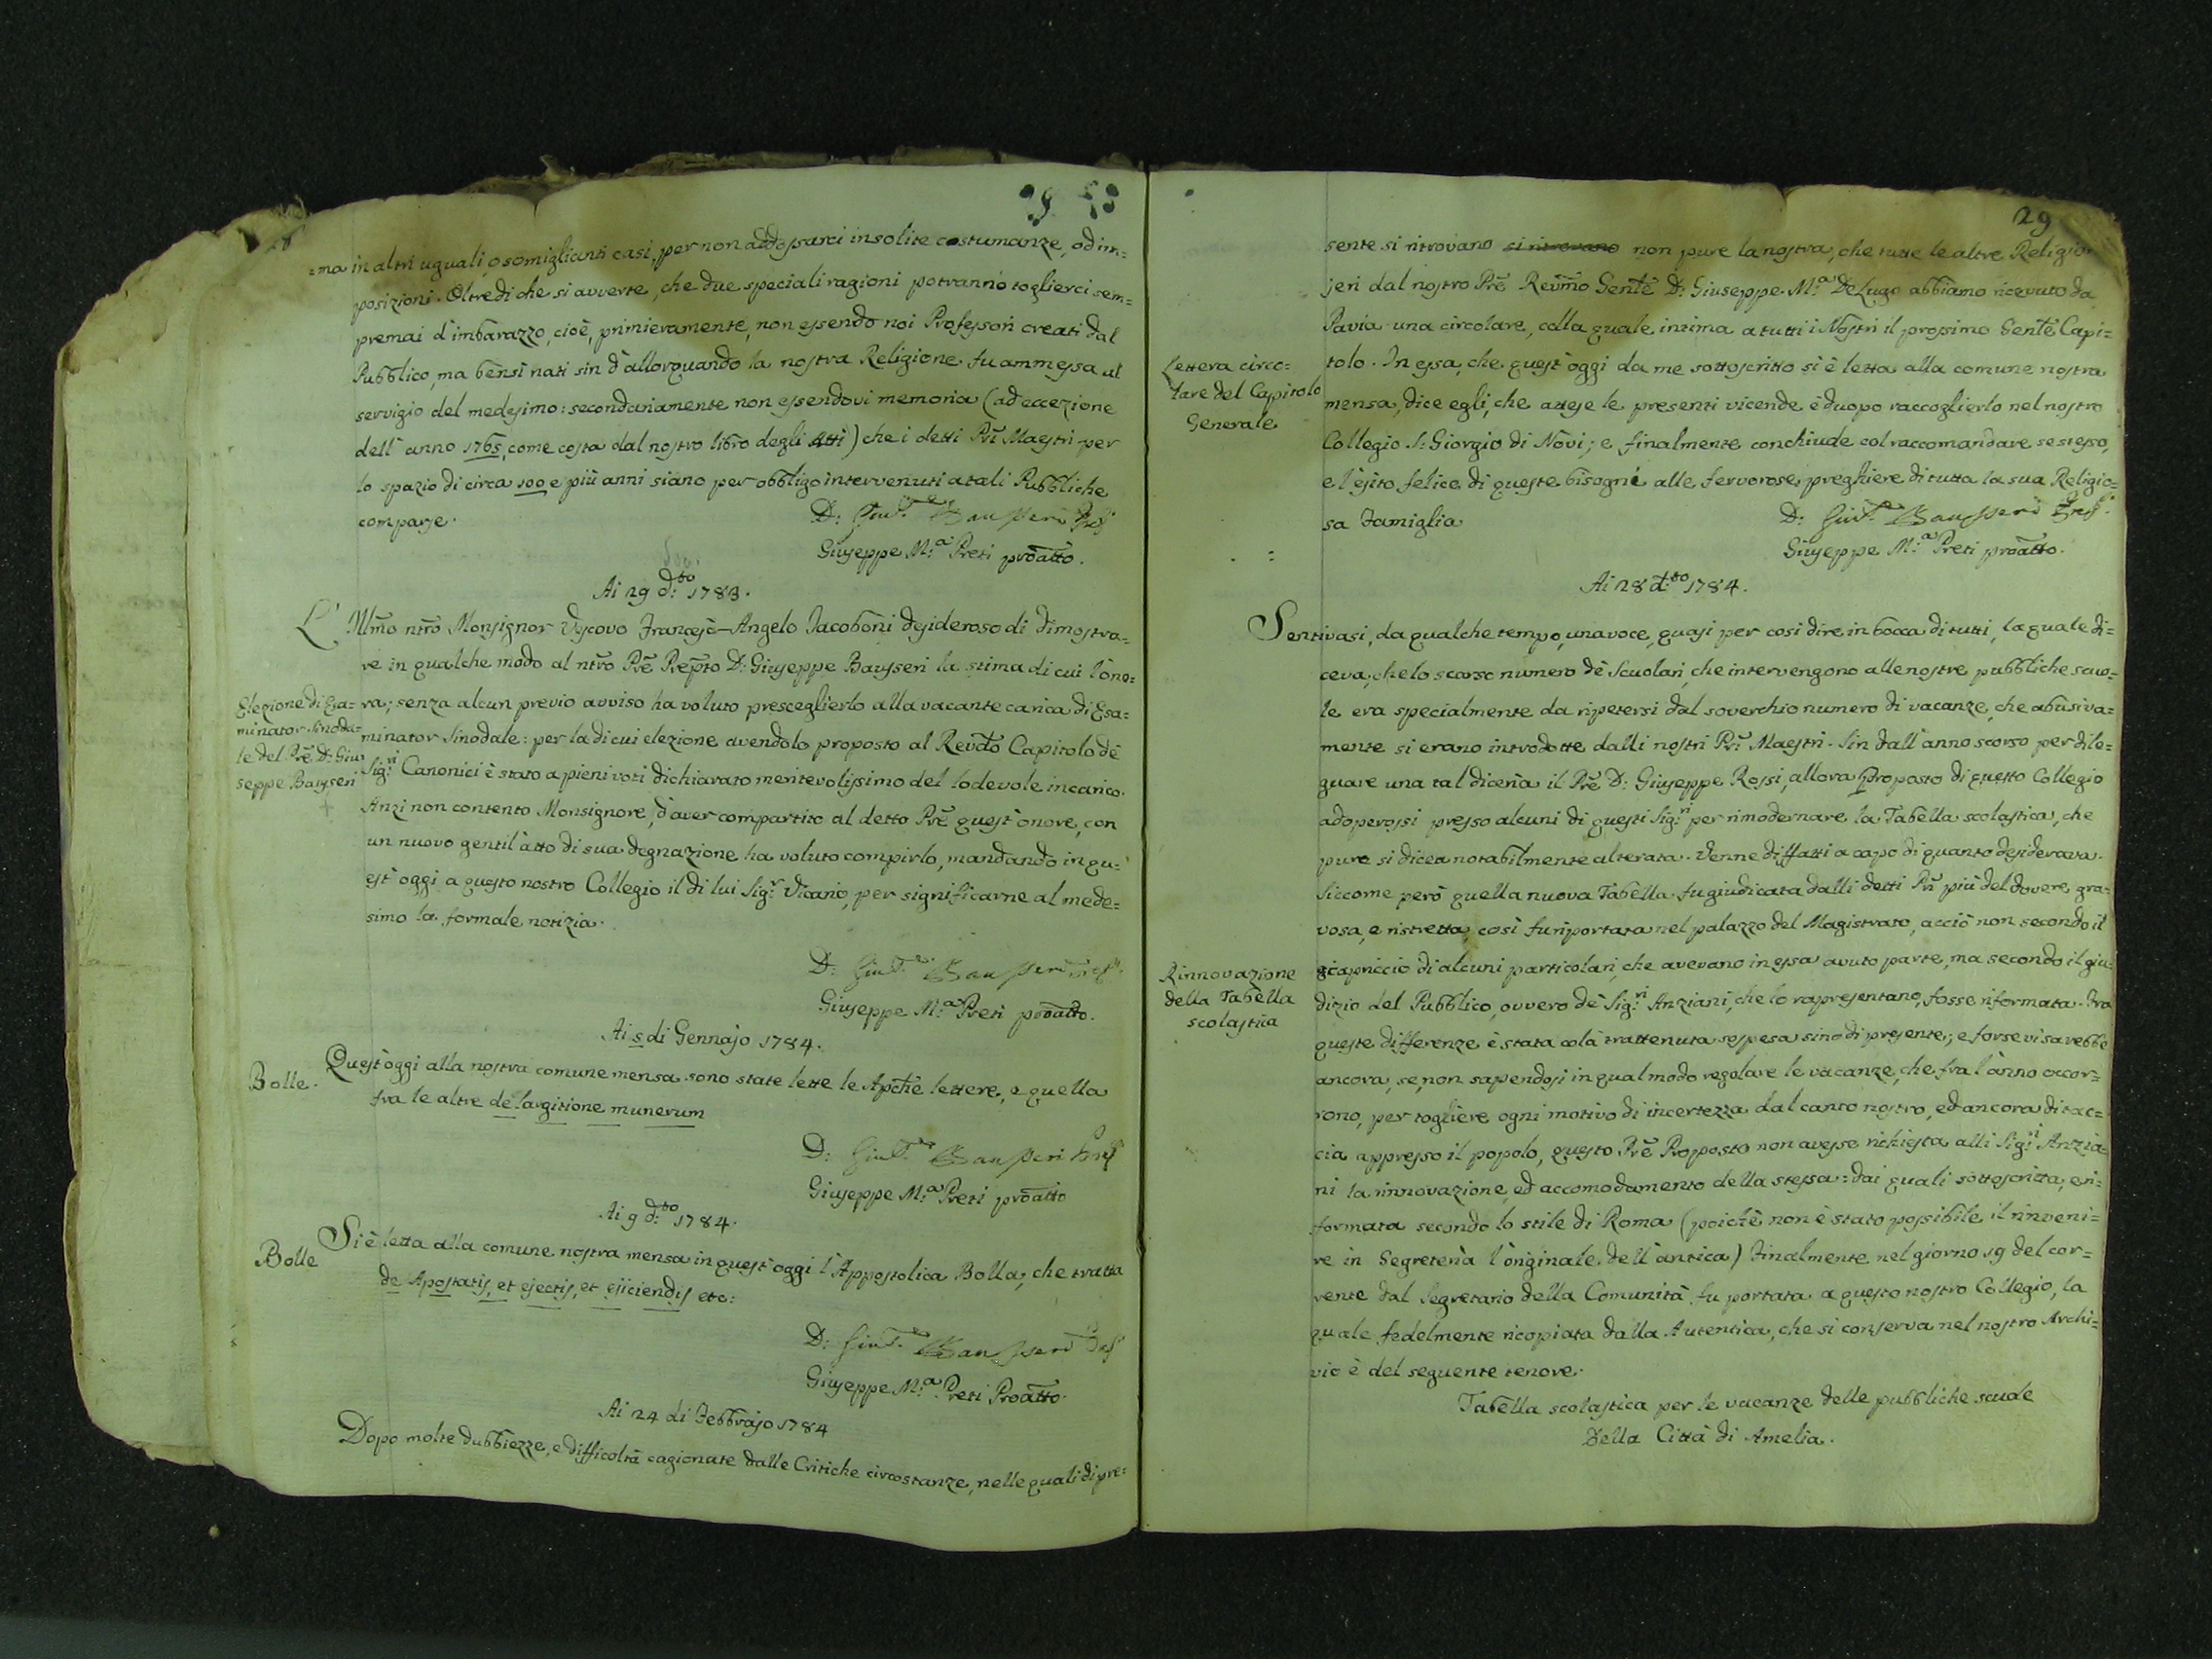 =ma in altri uguali, o somiglianti casi, per non addossarci insolite costumanze, od im=
posizioni. Oltredi che si avverte, che due speciali ragioni potranno toglierci sem=
premai d'imbarazzo, cioè, primieramente, non essendo noi Professori creati dal
Pubblico, ma bensì nati sin d'allorquando la nostra Religione fu ammessa al
servigio del medesimo: secondariamente non essendovi memoria (ad eccezione
dell'anno 1765, come costa dal nostro libro degli Atti) che i detti Pri Maestri per
lo spazio di circa 100 e più anni siano per obbligo intervenuti a tali Pubbliche
comparse.
D: Giuse. Bausseri Prep.
Giuseppe M.a Preti proatto.
Ai 29 d:to 1783.
L'Illmo ntro Monsignor Vescovo Francesc-Angelo Jacoboni desideroso di dimostra=
re in qualche modo al ntro Pre Prepto D: Giuseppe Baysseri la stima di cui l'ono=
ra; senza alcun previo avviso ha voluto presceglierlo alla vacante carica di Esa=
minator Sinodale: per la di cui elezione avendolo proposto al Revdo Capitolo de'
Sig.ri Canonici è stato a pieni voti dichiarato meritevolissimo del lodevole incarico.
Anzi non contento Monsignore, d'aver compartito al detto Pre quest'onore, con
un nuovo gentil'atto di sua degnazione ha voluto compirlo, mandando in qu=
est'oggi a questo nostro Collegio il di lui Sig.r Vicario, per significarne al mede=
simo la formale notizia.
Elezione di Esa=
minator Sinoda=
le del Pre D: Giu
seppe Baysseri
D: Giuse. Bausseri Prep.
Giuseppe M.a Preti proatto.
Ai 5 di Gennajo 1784.
Bolle.
Quest'oggi alla nostra comune mensa sono state lette le Apche lettere, e quella
fra le altre de largitione munerum
D: Giuse. Bausseri Prep
Giuseppe M.a Preti proatto
Ai 9 d:to 1784.
Bolle
Si è letta alla comune nostra mensa in quest'oggi l'Appostolica Bolla, che tratta
de Apostatis, et ejectis, et ejiciendis etc:
D: Giuse. Bausseri Prep
Giuseppe M.a Preti Proatto.
Ai 24 di Febbrajo 1784
Dopo molte dubbiezze, e difficoltà cagionate dalle Critiche circostanze, nelle quali di pre=
29
sente si ritrovano si ritrovano non pure la nostra, che tutte le altre Religion
jeri dal nostro Pre Revmo Gente D: Giuseppe M.a De Lugo abbiamo ricevuto da
Pavia una circolare, colla quale intima a tutti i Nostri il prossimo Gente Capi=
tolo. In essa, che quest'oggi da me sottoscritto si è letta alla comune nostra
mensa, dice egli, che attese le presenti vicende è duopo raccoglierlo nel nostro
Collegio S: Giorgio di Novi; e finalmente conchiude col raccomandare se stesso,
e l'esito felice di queste bisogne alle fervorose preghiere di tutta la sua Religio=
sa Famiglia
Lettera circo=
lare del Capitolo
Generale
D: Giuse. Bausseri Prep.
Giuseppe M.a Preti proatto.
Ai 28 d:to 1784.
Sentivasi, da qualche tempo, una voce, quasi per così dire in bocca di tutti, la quale di=
ceva, che lo scarso numero de' Scuolari, che intervengono alle nostre pubbliche scuo=
le era specialmente da ripetersi dal soverchio numero di vacanze, che abusiva=
mente si erano introdotte dalli nostri Pri Maestri. Sin dall'anno scorso per dile=
guare una tal diceria il Pre D: Giuseppe Rossi, allora Proposto di questo Collegio
adoperossi presso alcuni di questi Sig.ri per rimodernare la Tabella scolastica, che
pure si dicea notabilmente alterata. Venne diffatti a capo di quanto desiderava.
Siccome però quella nuova Tabella fu giudicata dalli detti Pri più del dovere gra=
vosa, e ristretta, così fu riportata nel palazzo del Magistrato, acciò non secondo il
capriccio di alcuni particolari, che avevano in essa avuto parte, ma secondo il giu=
dizio del Pubblico, ovvero de' Sig.ri Anziani, che lo rapresentano, fosse riformata. Fra
queste differenze è stata colà trattenuta sospesa sino di presente; e forse vi sarebbe
ancora, se, non sapendosi in qual modo regolare le vacanze, che fra l'anno occor=
rono, per togliere ogni motivo di incertezza dal canto nostro, ed ancora di tac=
cia appresso il popolo, questo Pre Proposto non avesse richiesta alli Sig.ri Anzia=
ni la rinnovazione, ed accomodamento della stessa: dai quali sottoscritta, e ri=
formata secondo lo stile di Roma (poichè non è stato possibile il rinveni=
re in Segreteria l'originale dell'antica) Finalmente nel giorno 19 del cor=
rente dal Segretario della Comunità fu portata a questo nostro Collegio, la
quale fedelmente ricopiata dalla Autentica, che si conserva nel nostro Archi=
vio è del seguente tenore.
Rinnovazione
della Tabella
scolastica
Tabella scolastica per le vacanze delle pubbliche scuole
Della Città di Amelia.